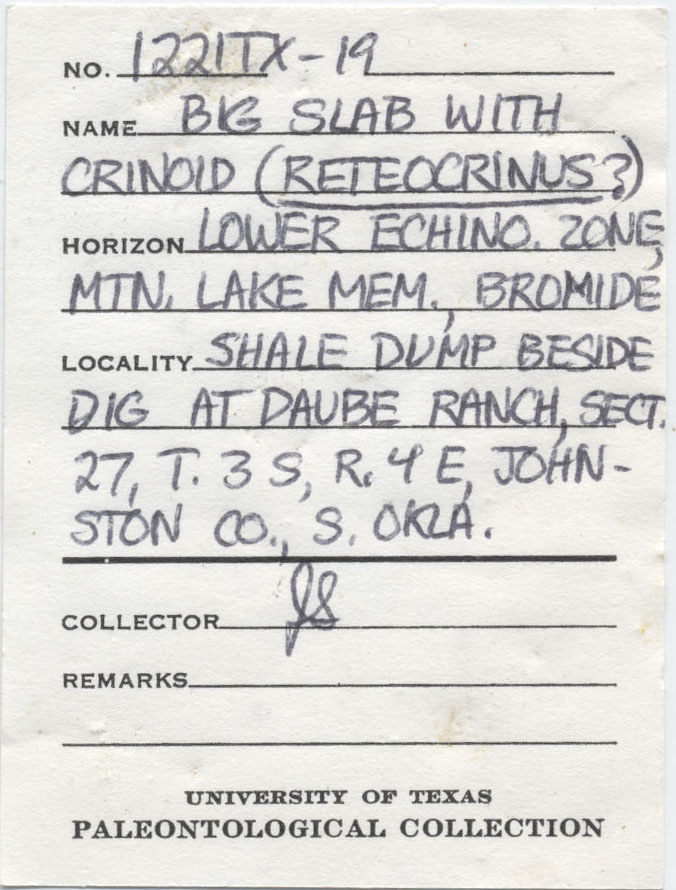 NO. 1221TX-19
NAME BIG SLAB WITH
CRINOID (RETEOCRINUS?)
HORIZON LOWER ECHINO. ZONE,
MTN. LAKE MEM., BROMIDE
LOCALITY SHALE DUMP BESIDE
DIG AT DAUBE RANCH, SECT.
27, T. 3 S, R. 4 E, JOHN-
STON CO., S. OKLA.
COLLECTOR JS
REMARKS
UNIVERSITY OF TEXAS
PALEONTOLOGICAL COLLECTION